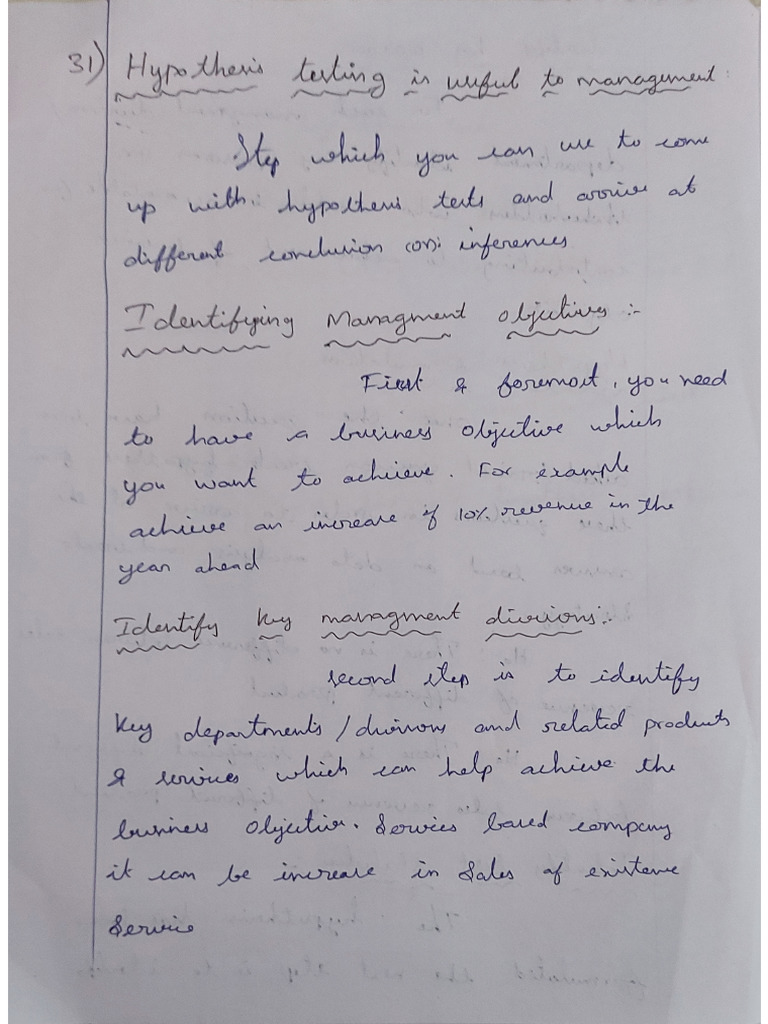 31) Hypothesis testing is useful to management:
Step which you can use to come
up with hypothesis tests and arrive at
different conclusion (or): inferences
Identifying Managment objectives :-
First & foremost, you need
to have a business objective which
you want to achieve. For example
achieve an increase of 10% revenue in the
year ahead
Identify Key managment divisions:-
second step is to identify
Key departments/divisions and related products
& services which can help achieve the
business objective. Services based company
it can be increase in Sales of existence
Service